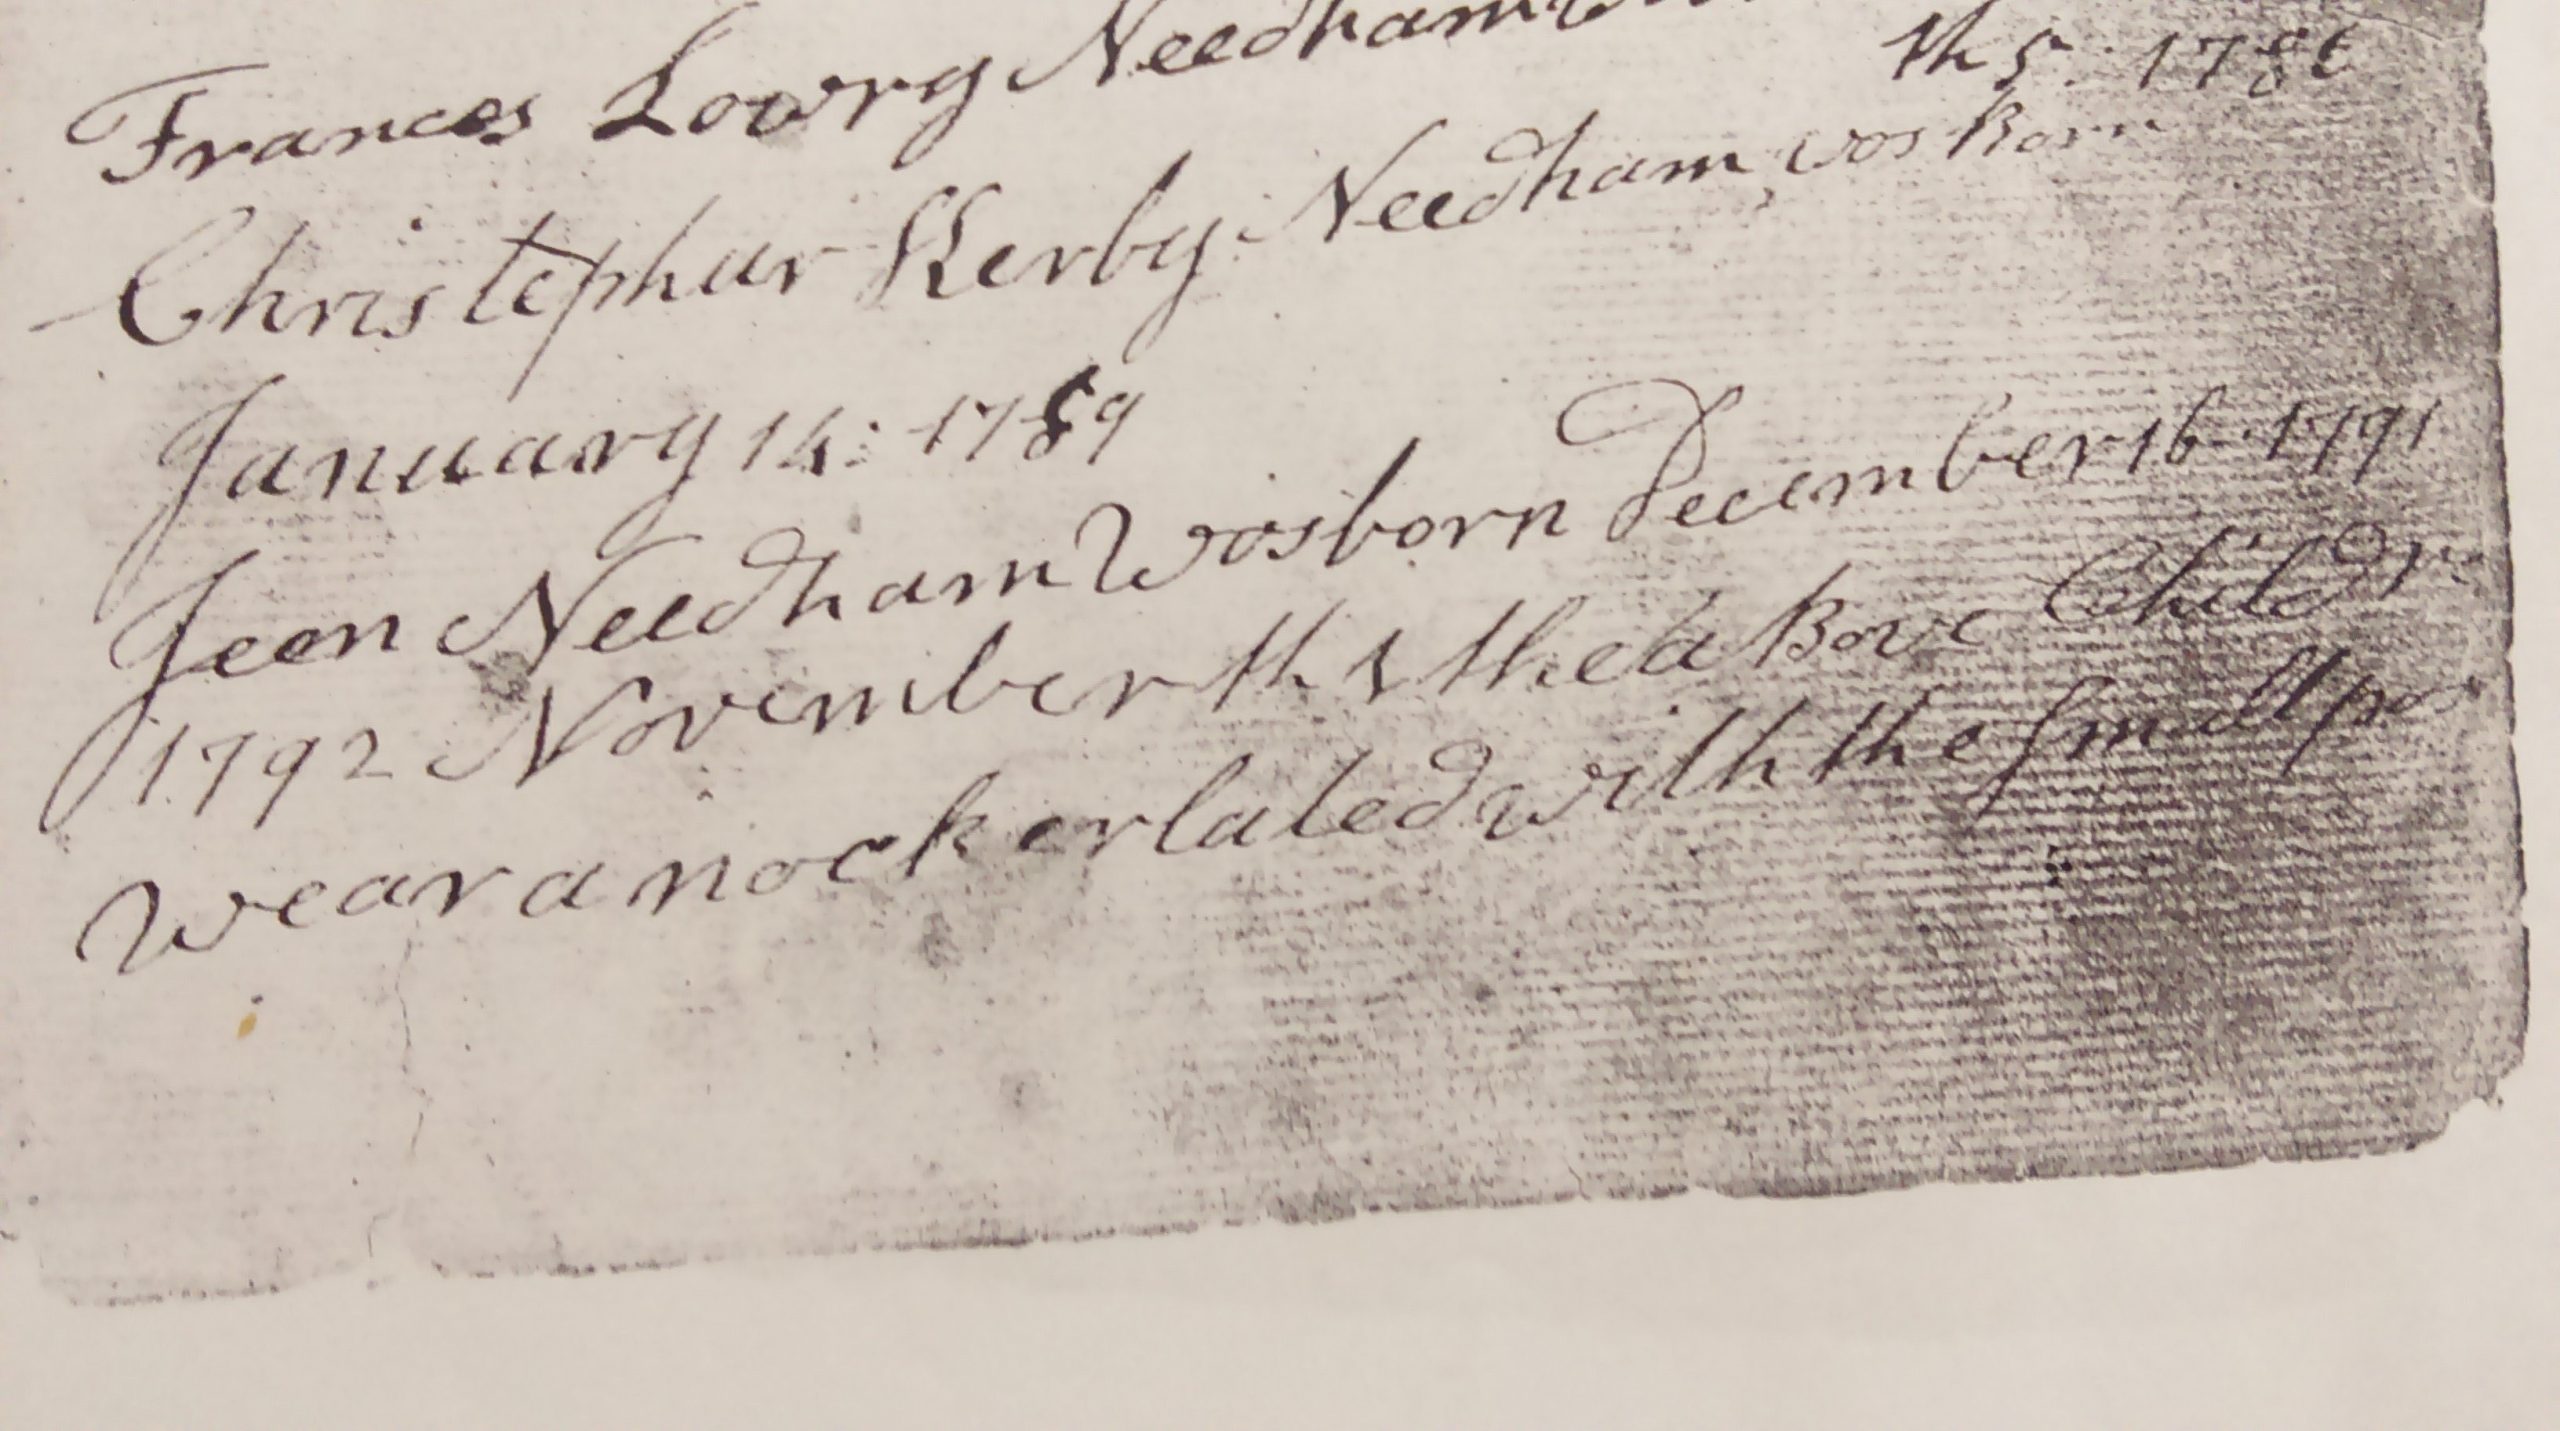 Frances Lowry Needham
th 5: 178
Christephur Kerby Needham wos Born
January 14: 1789
Jeen Needham Wosborn December 16 1791
1792 November th 1 the a Bove Childr
Wear a nockerlated with the Smallpox